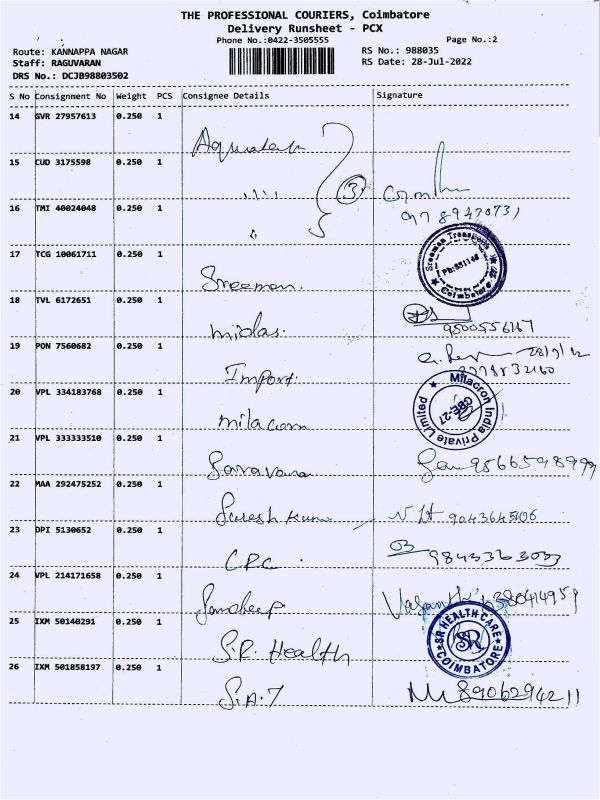 THE PROFESSIONAL COURIERS, Coimbatore
Delivery Runsheet - PCX
Phone No.:0422-3505555
Page No.:2
Route: KANNAPPA NAGAR
RS No.: 988035
Staff: RAGUVARAN
RS Date: 28-Jul-2022
DRS No.: DCJB98803502
S No Consignment No Weight PCS Consignee Details Signature
14 GVR 27957613 0.250 1
15 CUD 3175598 0.250 1
3
16 TMI 40024048 0.250 1
17 TCG 10061711 0.250 1 Sreeman.
Sreeman Transports
Coimbatore
18 TVL 6172651 0.250 1 midas.
19 PON 7560682 0.250 1 Import.
20 VPL 334183768 0.250 1 milacron
Milacron India Private Limited
CBE-27
21 VPL 333333510 0.250 1 Saravana
22 MAA 292475252 0.250 1 Suresh Kumar
9043645106
23 DPI 5130652 0.250 1 CPC.
9843363033
24 VPL 214171658 0.250 1 Sandeep
25 IXM 50140291 0.250 1 S.R. Health
SR HEALTH CARE
SR
COIMBATORE
26 IXM 501858197 0.250 1 S.A.7
8906294211